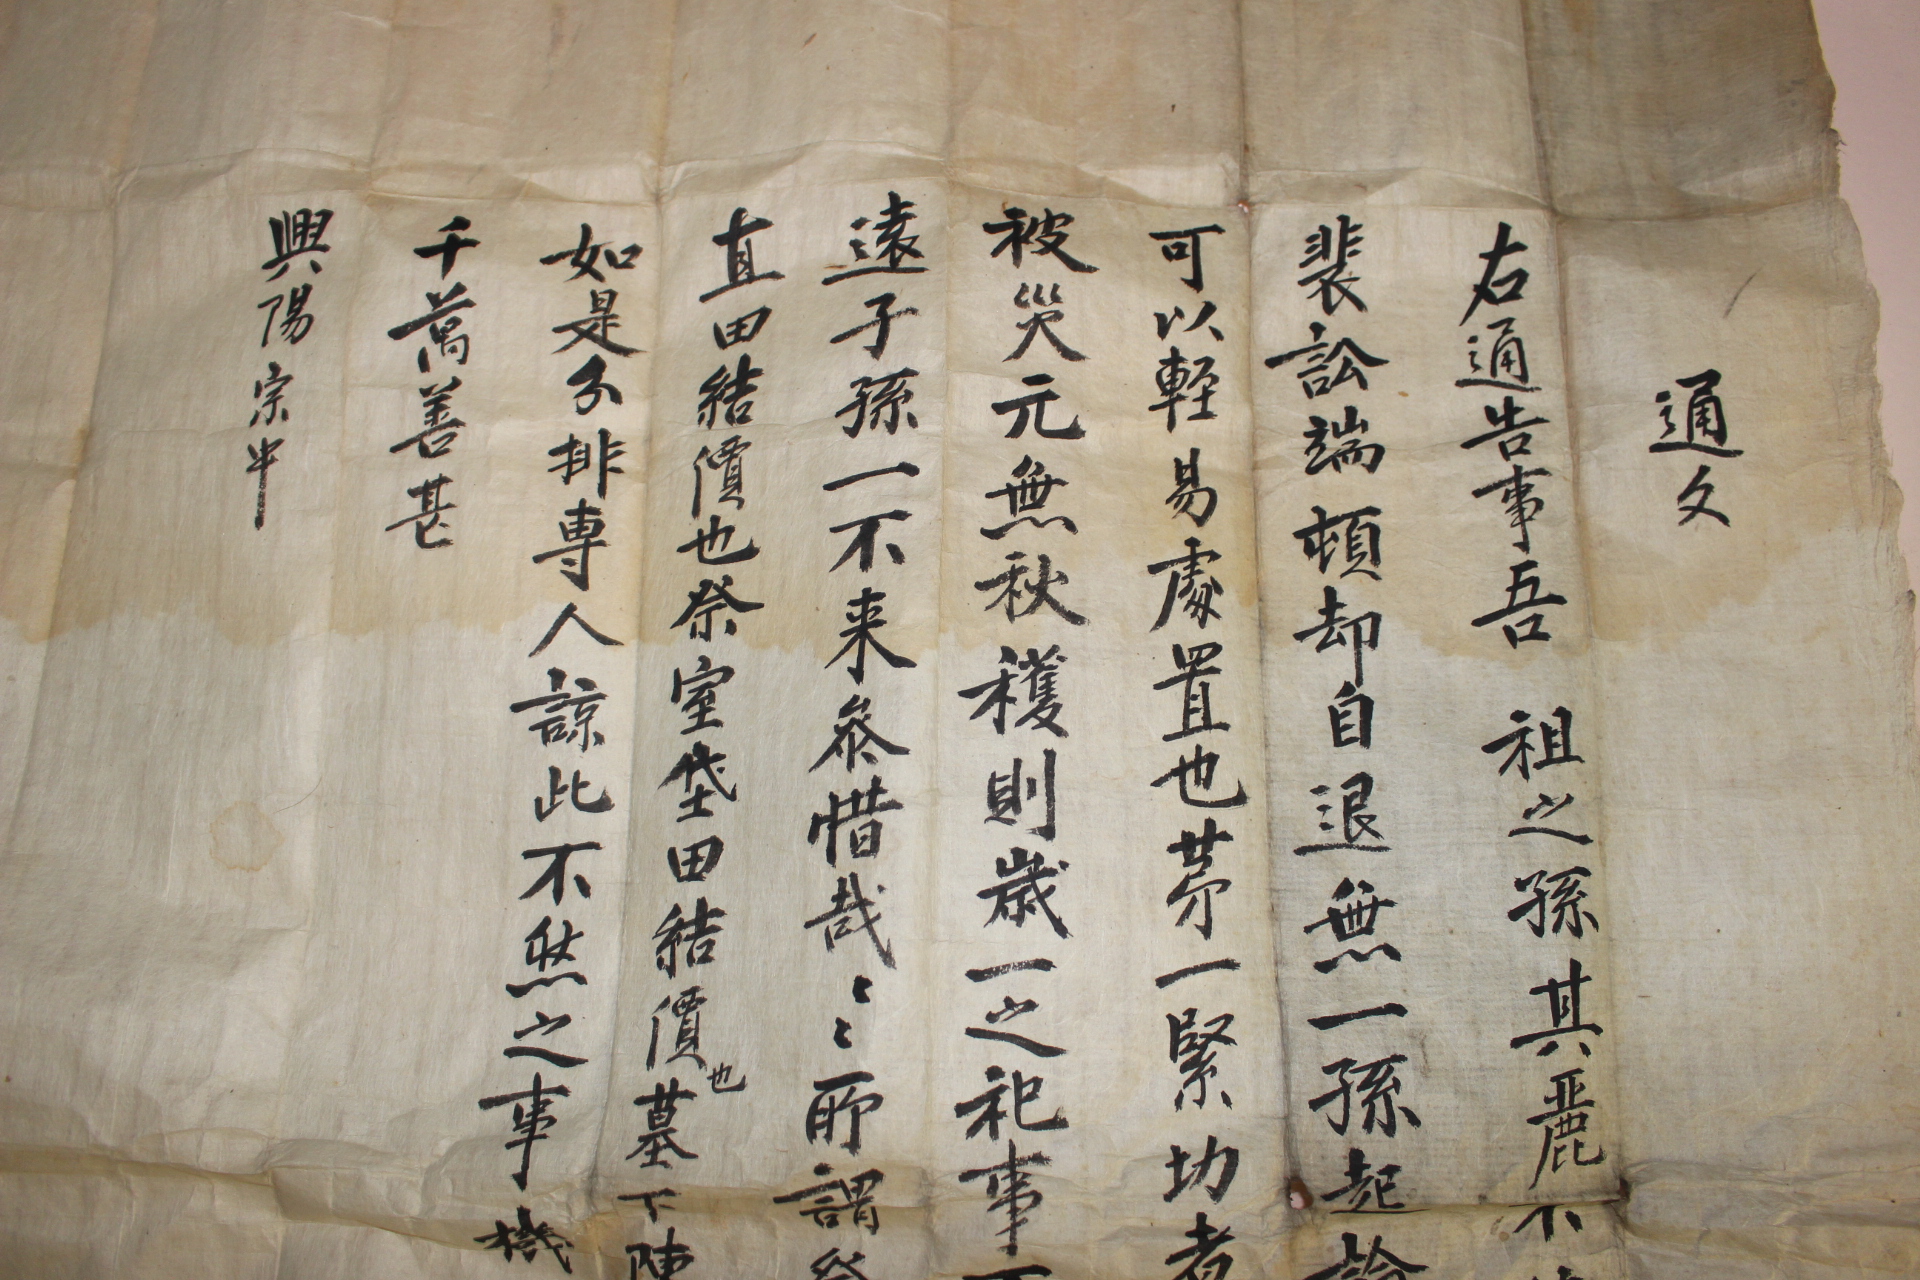 通文
右通告事吾 祖之孫其麗不
裴訟端頓却自退無一孫起論
可以輕易處置也茅一緊切者
被災元無秋穫則歲一之祀事不
遠子孫一不来叅惜哉〻〻所謂祭
直田結價也祭室垈田結價也墓下陳
如是分排專人諒此不然之事機
千萬善甚
興陽宗中